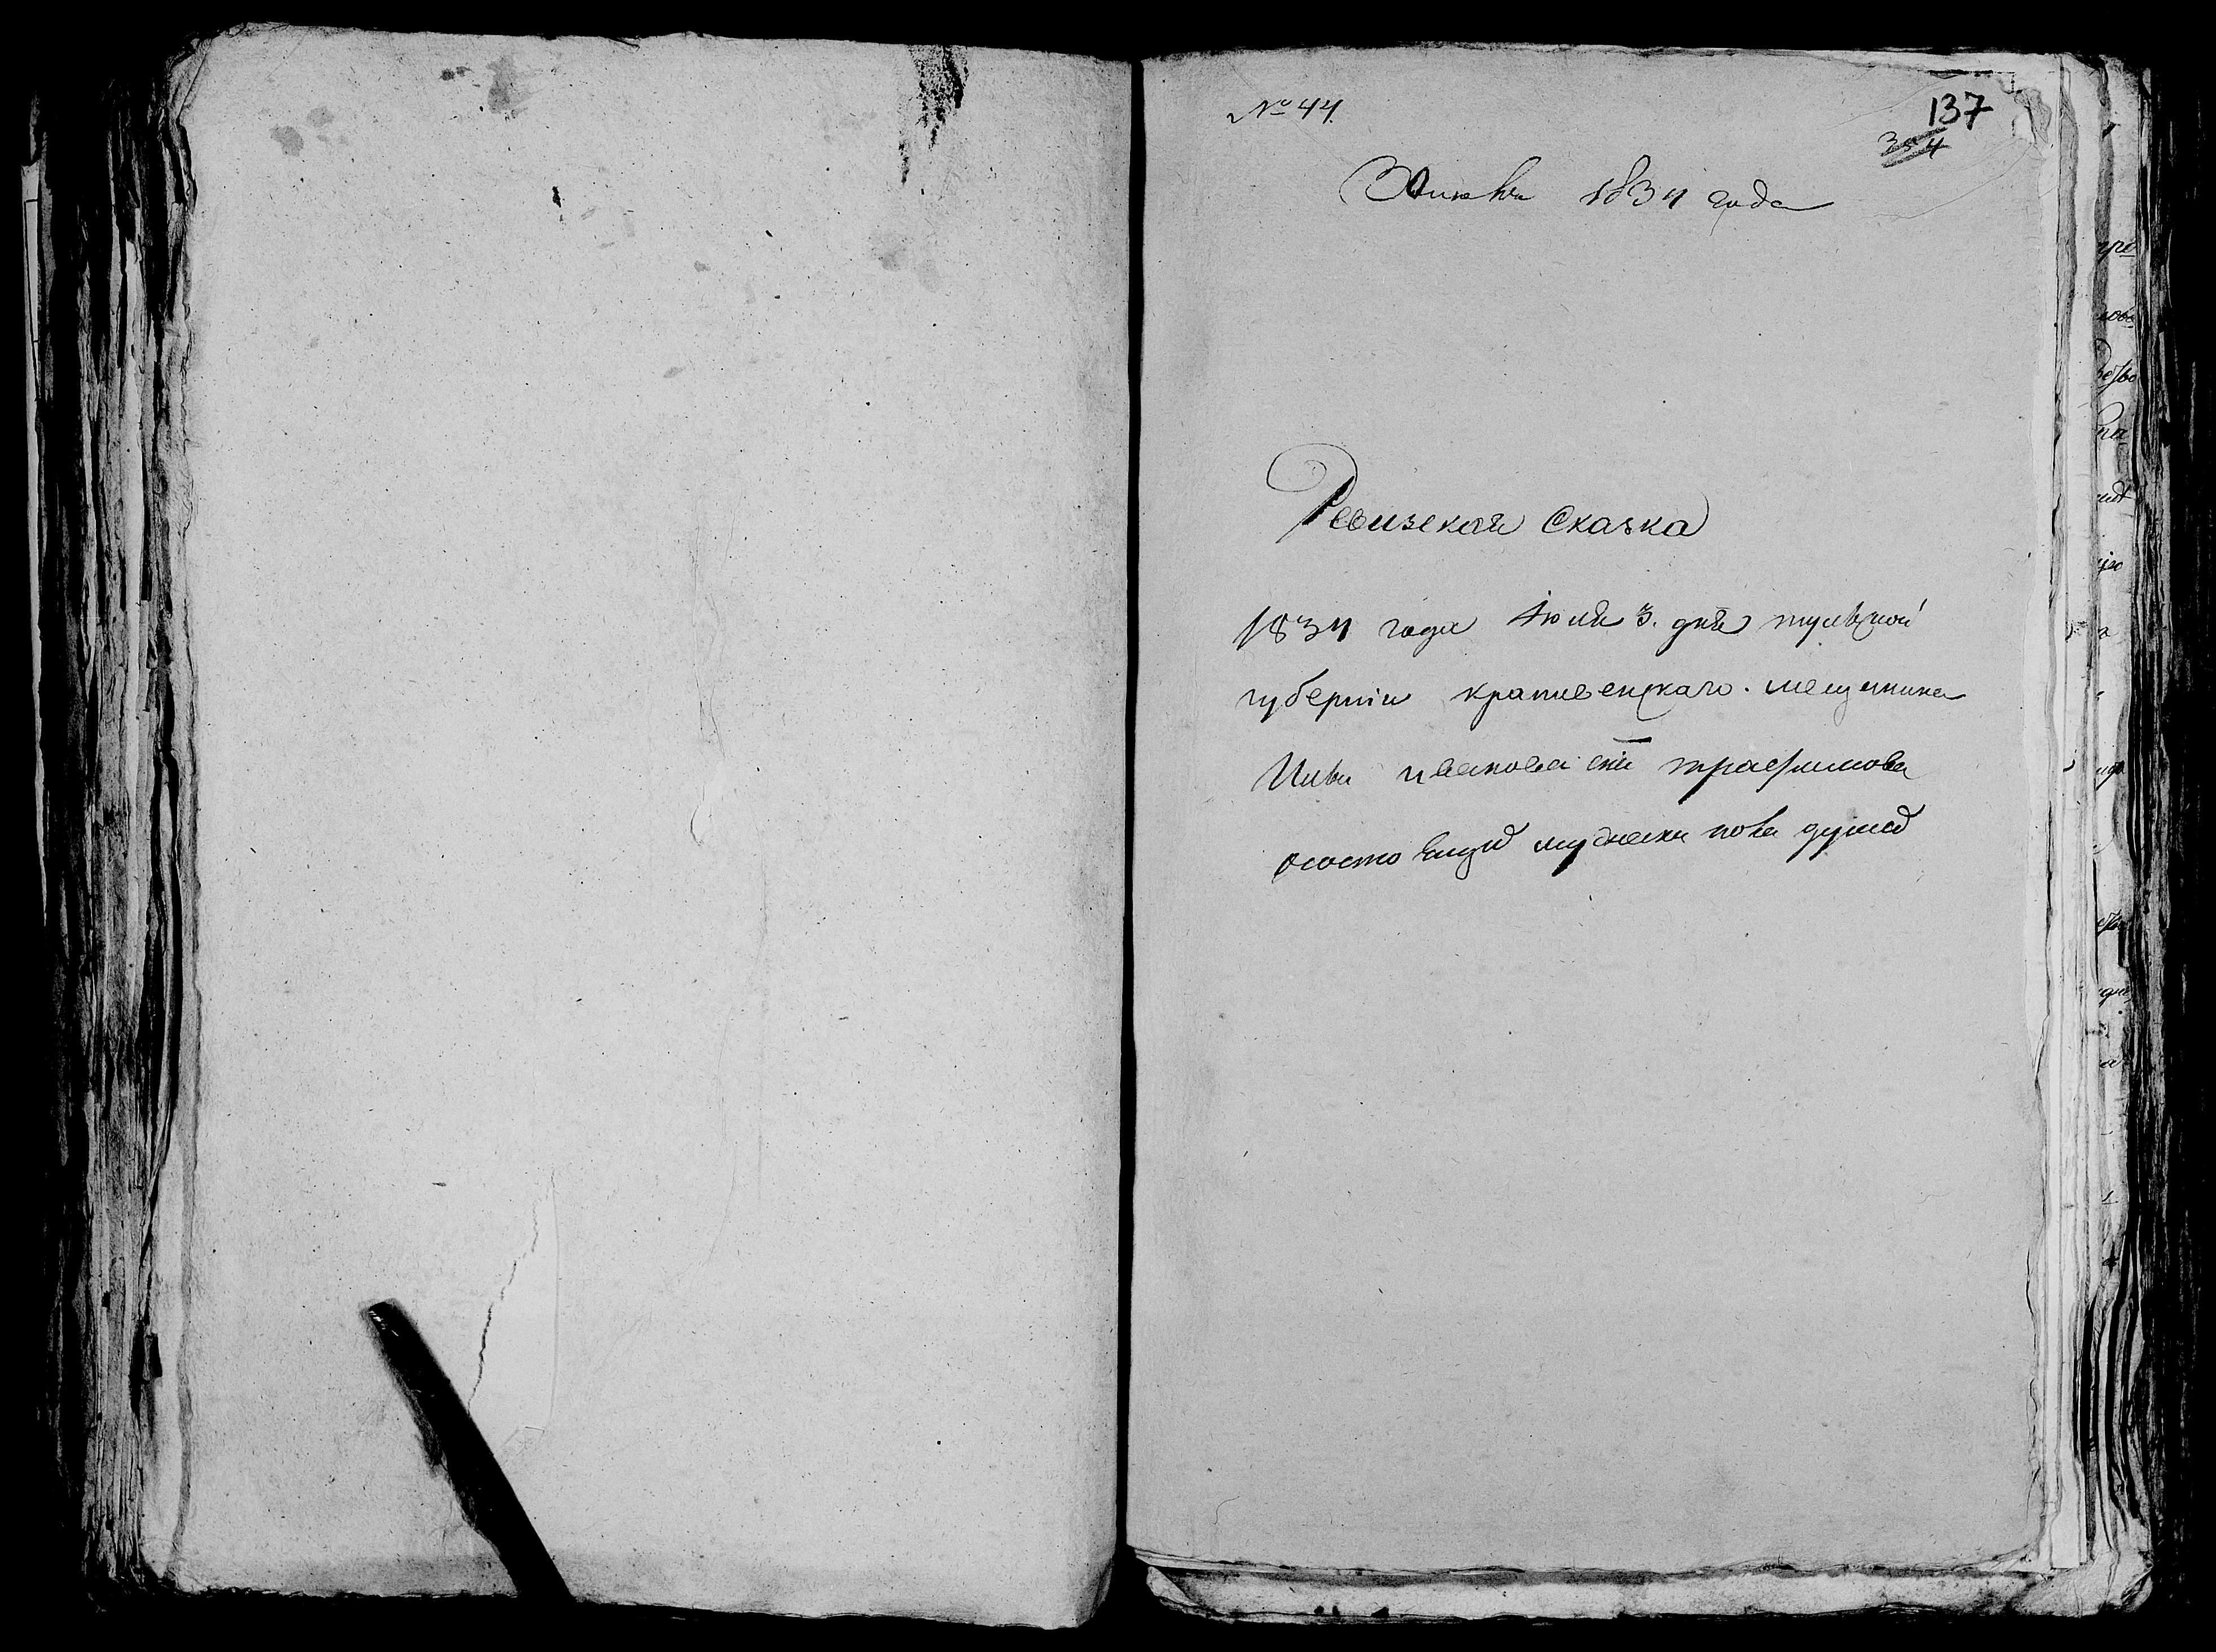 № 44.
137
354
1834 года
Ревизская Сказка
1834 года Июля 3. дня тульской
губернии крапивенскаго. мещанина
Ильи Иванова сна трафимова
состоящих мужеска пола душах